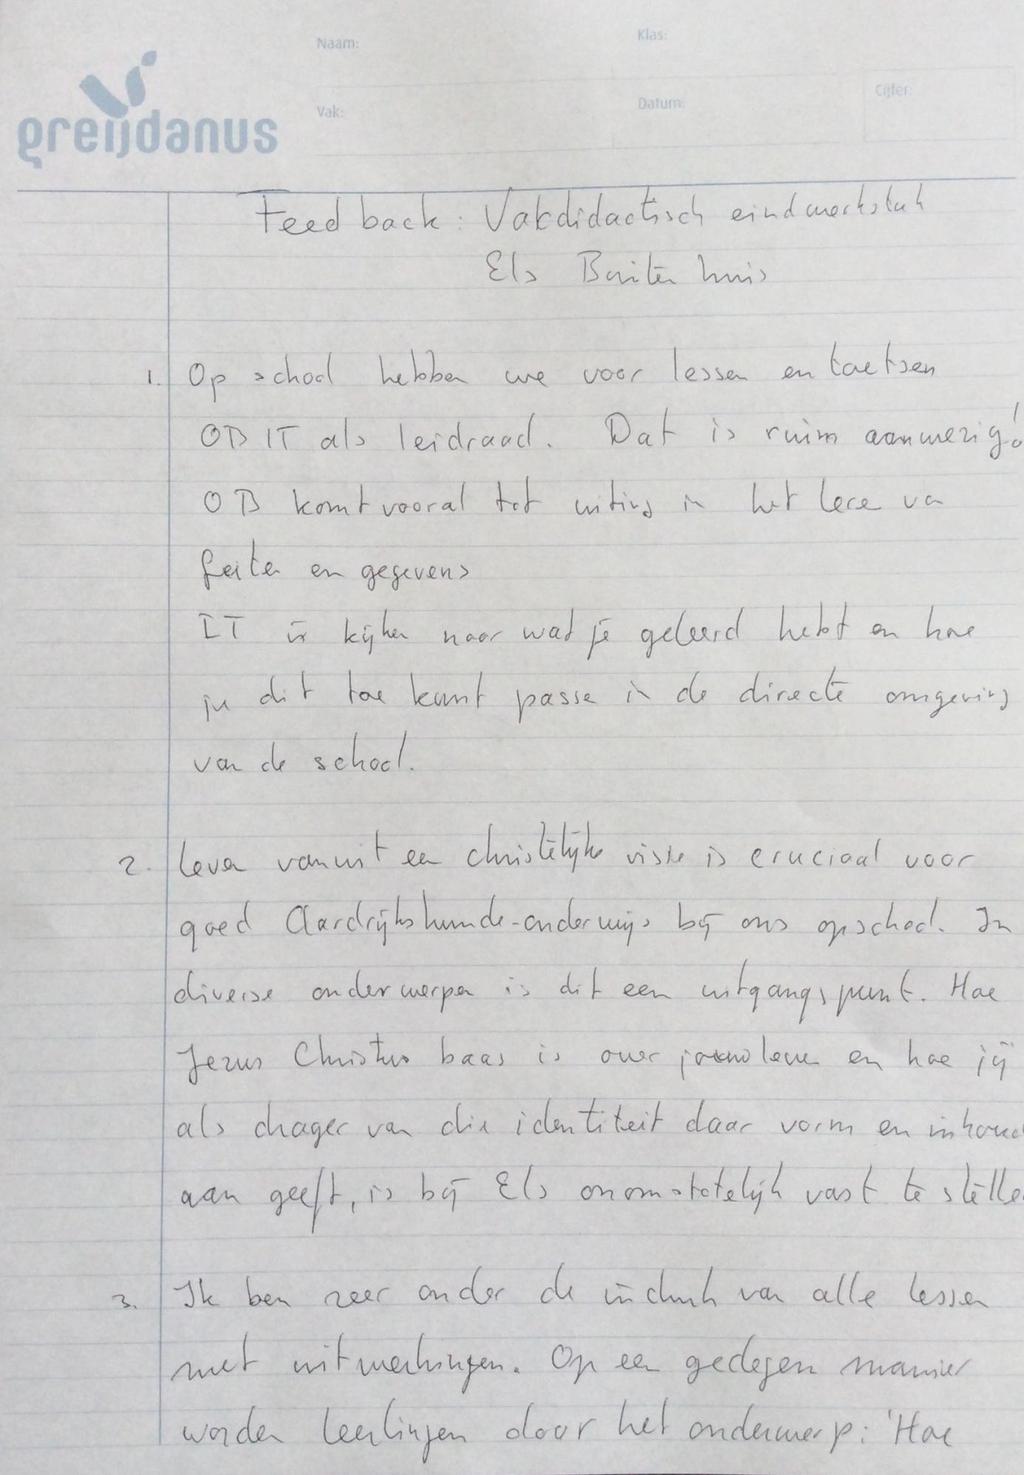 Naam:
Klas:
Cijfer:
Vak:
Datum:
greijdanus
Feedback: Vakdidactisch eindwerkstuk
Els Buitenhuis
1. Op school hebben we voor lessen en toetsen
OBIT als leidraad. Dat is ruim aanwezig!
OB komt vooral tot uiting in het leren van
feiten en gegevens
IT is kijken naar wat je geleerd hebt en hoe
je dit toe kunt passen in de directe omgeving
van de school.
2. Leven vanuit een christelijke visie is cruciaal voor
goed Aardrijkskunde-onderwijs bij ons op school. In
diverse onderwerpen is dit een uitgangspunt. Hoe
Jezus Christus baas is over jouw leven en hoe jij
als drager van die identiteit daar vorm en inhoud
aan geeft, is bij Els onomstotelijk vast te stellen
3. Ik ben zeer onder de indruk van alle lessen
met uitwerkingen. Op een gedegen manier
worden leerlingen door het onderwerp: 'Hoe